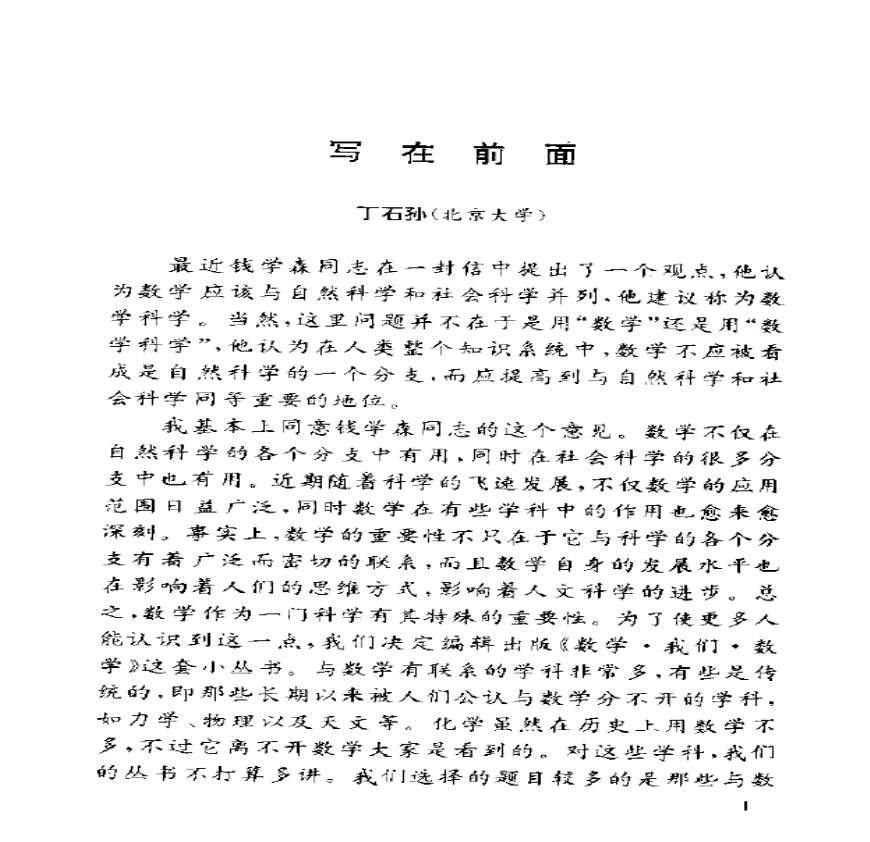 写在前面
丁石孙(北京大学)
最近钱学森同志在一封信中提出了一个观点,他认
为数学应该与自然科学和社会科学并列,他建议称为数
学科学。当然,这里问题并不在于是用“数学”还是用“数
学科学”,他认为在人类整个知识系统中,数学不应被看
成是自然科学的一个分支,而应提高到与自然科学和社
会科学同等重要的地位。
我基本上同意钱学森同志的这个意见。数学不仅在
自然科学的各个分支中有用,同时在社会科学的很多分
支中也有用。近期随着科学的飞速发展,不仅数学的应用
范围日益广泛,同时数学在有些学科中的作用也愈来愈
深刻。事实上,数学的重要性不只在于它与科学的各个分
支有着广泛而密切的联系,而且数学自身的发展水平也
在影响着人们的思维方式,影响着人文科学的进步。总
之,数学作为一门科学有其特殊的重要性。为了使更多人
能认识到这一点,我们决定编辑出版《数学·我们·数
学》这套小丛书。与数学有联系的学科非常多,有些是传
统的,即那些长期以来被人们公认与数学分不开的学科,
如力学、物理以及天文等。化学虽然在历史上用数学不
多,不过它离不开数学大家是看到的。对这些学科,我们
的丛书不打算多讲。我们选择的题目较多的是那些与数
1